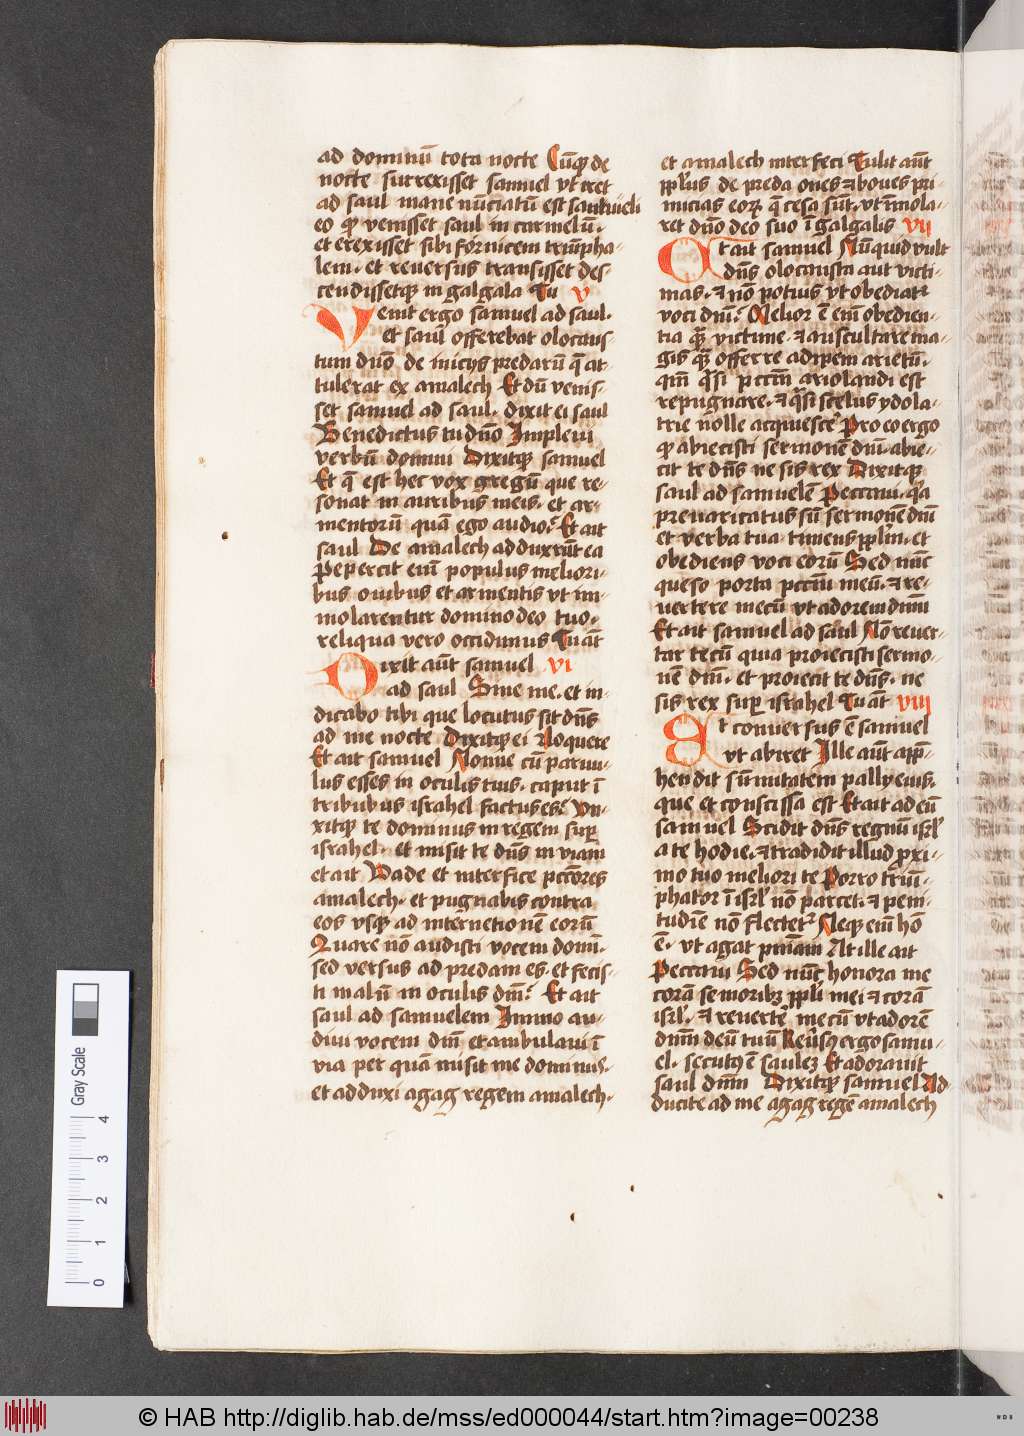 ad dominū tota nocte Cūqꝫ de
nocte surrexisset samuel vt iret
ad saul mane nūciatū est samueli
eo ꝙ venisset saul in carmelū.
et erexisset sibi fornicem triūpha-
lem. et reversus transisset des-
cendissetqꝫ in galgala Tu v
Venit ergo samuel ad saul.
et saul offerebat olocaus-
tum dn̄o de inicijs predarū q̄ at-
tulerat ex amalech Et dū venis-
set samuel ad saul. dixit ei saul
Benedictus tu dn̄o Impleui
verbū domini Dixitqꝫ samuel
Et q̄ est hec vox gregū que re-
sonat in auribus meis. et ar-
mentorū quā ego audio. Et ait
saul De amalech adduxerūt ea
Pepercit enī populus meliori-
bus ouibus et armentis vt im-
molarentur domino deo tuo.
reliqua vero occidimus Tu aūt
Dixit aūt samuel vi
ad saul Sine me. et in-
dicabo tibi que locutus sit dn̄s
ad me nocte Dixitqꝫ ei Loquere
Et ait samuel Nonne cū paruu-
lus esses in oculis tuis. caput ī
tribubus israhel factus es. vn-
xitqꝫ te dominus in regem suꝑ
israhel. et misit te dn̄s in viam
et ait Vade et interfice pctōres
amalech. et pugnabis contra
eos vsqꝫ ad internetionē eorū
Quare nō audisti vocem domī.
sed versus ad predam es. et fecis-
ti malū in oculis dn̄i. Et ait
saul ad samuelem Immo au-
diui vocem dn̄i et ambulaui ī
via per quā misit me dominus.
et adduxi agag regem amalech.
et amalech interfeci Tulit aūt
pp̄lus de preda oues ⁊ boues pri-
micias eorꝫ q̄ cesa sūt. vt īmola-
ret dn̄o deo suo ī galgalis vij
Et ait samuel Nūquid vult
dn̄s olocausta aut victi-
mas. ⁊ nō potius vt obediat
voci dn̄i. Melior ē enī obedien-
tia quā victime. ⁊ auscultare ma-
gis quā offerre adipem arietū.
qm̄ quasi pctm̄ ariolandi est
repugnare. ⁊ quasi scelus ydola-
trie nolle acquiescē Pro eo ergo
ꝙ abiecisti sermonē dn̄i abie-
cit te dn̄s ne sis rex Dixitqꝫ
saul ad samuelē Peccaui. q̄a
preuaricatus sū sermonē dn̄i
et verba tua timens pp̄lm. et
obediens voci eorū Sed nūc
queso porta pctm̄ meū. ⁊ re-
uertere mecū vt adorem dn̄m
Et ait samuel ad saul Nō reuer-
tar tecū quia proiecisti sermo-
nē dn̄i. et proiecit te dn̄s. ne
sis rex suꝑ israhel Tu aūt viij
Et conuersus ē samuel
vt abiret Ille aūt app̄-
hendit sūmitatem pallij eius.
que et conscissa est Et ait ad eū
samuel Scidit dn̄s regnū isrl̄
a te hodie. ⁊ tradidit illud proxi-
mo tuo meliori te Porro triū-
phator ī isrl̄ nō parcet. ⁊ peni-
tudīe nō flectet Neqꝫ enī hō
ē. vt agat pn̄iam At ille ait
Peccaui Sed nūc honora me
corā senioribꝫ pp̄li mei ⁊ corā
isrl̄. ⁊ reuertē mecū vt adorē
dn̄m deū tuū Reūsꝫ ergo samu-
el. secutꝫ ē saulez Et adorauit
saul dn̄m Dixitqꝫ samuel Ad
ducite ad me agag regē amalech
Gray Scale
0 1 2 3 4
© HAB http://diglib.hab.de/mss/ed000044/start.htm?image=00238